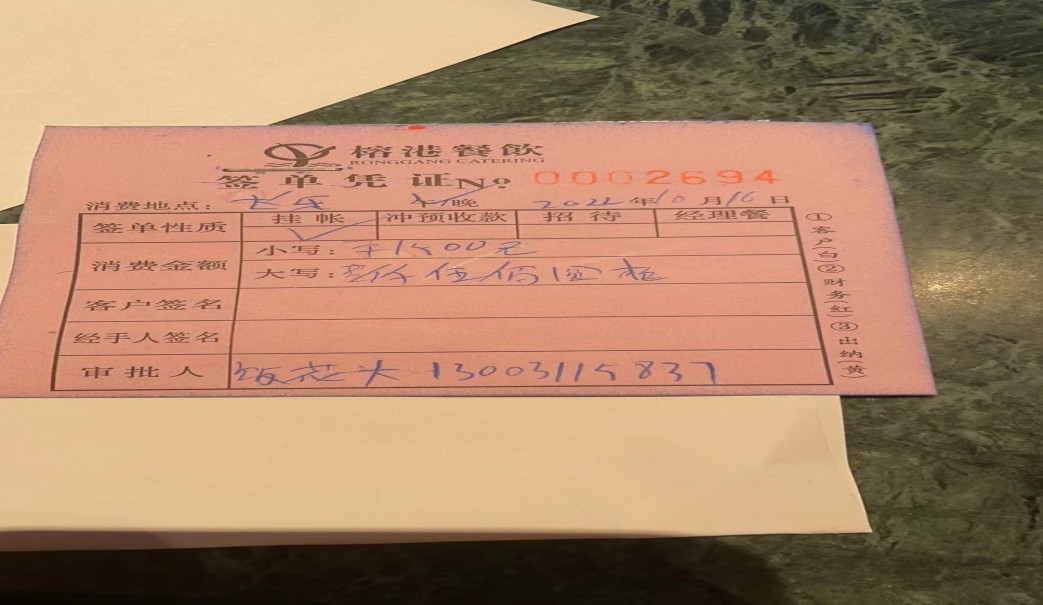 榕港餐飲
RONGGANG CATERING
签单凭证 No 0002694
消费地点： 午/晚 2022年10月16日
签单性质 挂帐 冲预收款 招待 经理餐
✓
消费金额 小写：￥1500元
大写：壹仟伍佰圆整
客户签名
经手人签名
审批人 13003115837
①客户(白)②财务(红)③出纳(黄)